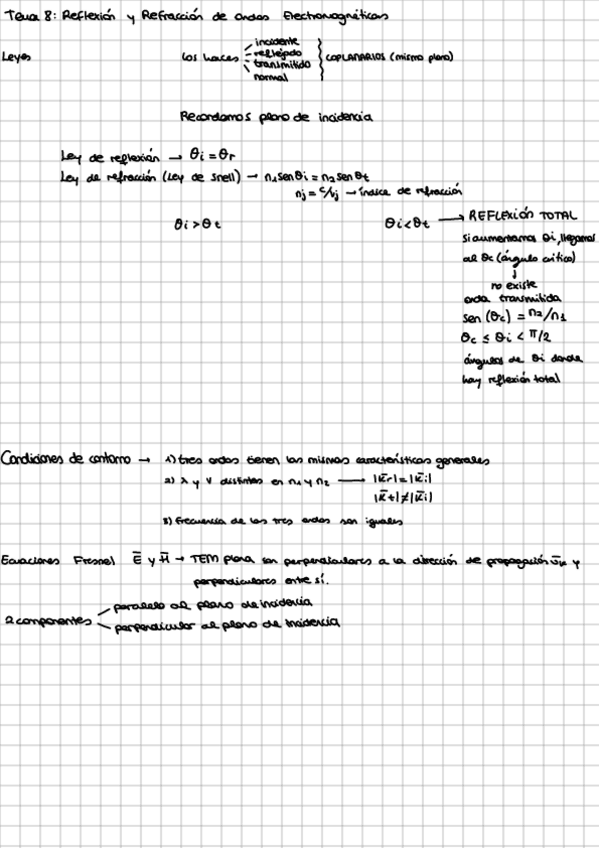 Tema 8: Reflexión y Refracción de ondas Electromagnéticas
Leyes los haces incidente reflejado transmitido normal COPLANARIOS (mismo plano)
Recordamos plano de incidencia
Ley de reflexión → θi = θr
Ley de refracción (Ley de Snell) → n₁ sen θi = n₂ sen θt
nj = c/vj → índice de refracción
θi > θt θi < θt → REFLEXIÓN TOTAL
si aumentamos θi, llegamos
al θc (ángulo crítico)
↓
no existe
onda transmitida
sen (θc) = n₂/n₁
θc ≤ θi < π/2
ángulos de θi donde
hay reflexión total
Condiciones de contorno → 1) tres ondas tienen las mismas características generales
2) λ y v distintas en n₁ y n₂ → |k̄r| = |k̄i|
|k̄t| ≠ |k̄i|
3) Frecuencia de las tres ondas son iguales
Ecuaciones Fresnel Ē y H̄ → TEM plana son perpendiculares a la dirección de propagación ūk y
perpendiculares entre sí.
2 componentes paralelo al plano de incidencia
perpendicular al plano de incidencia